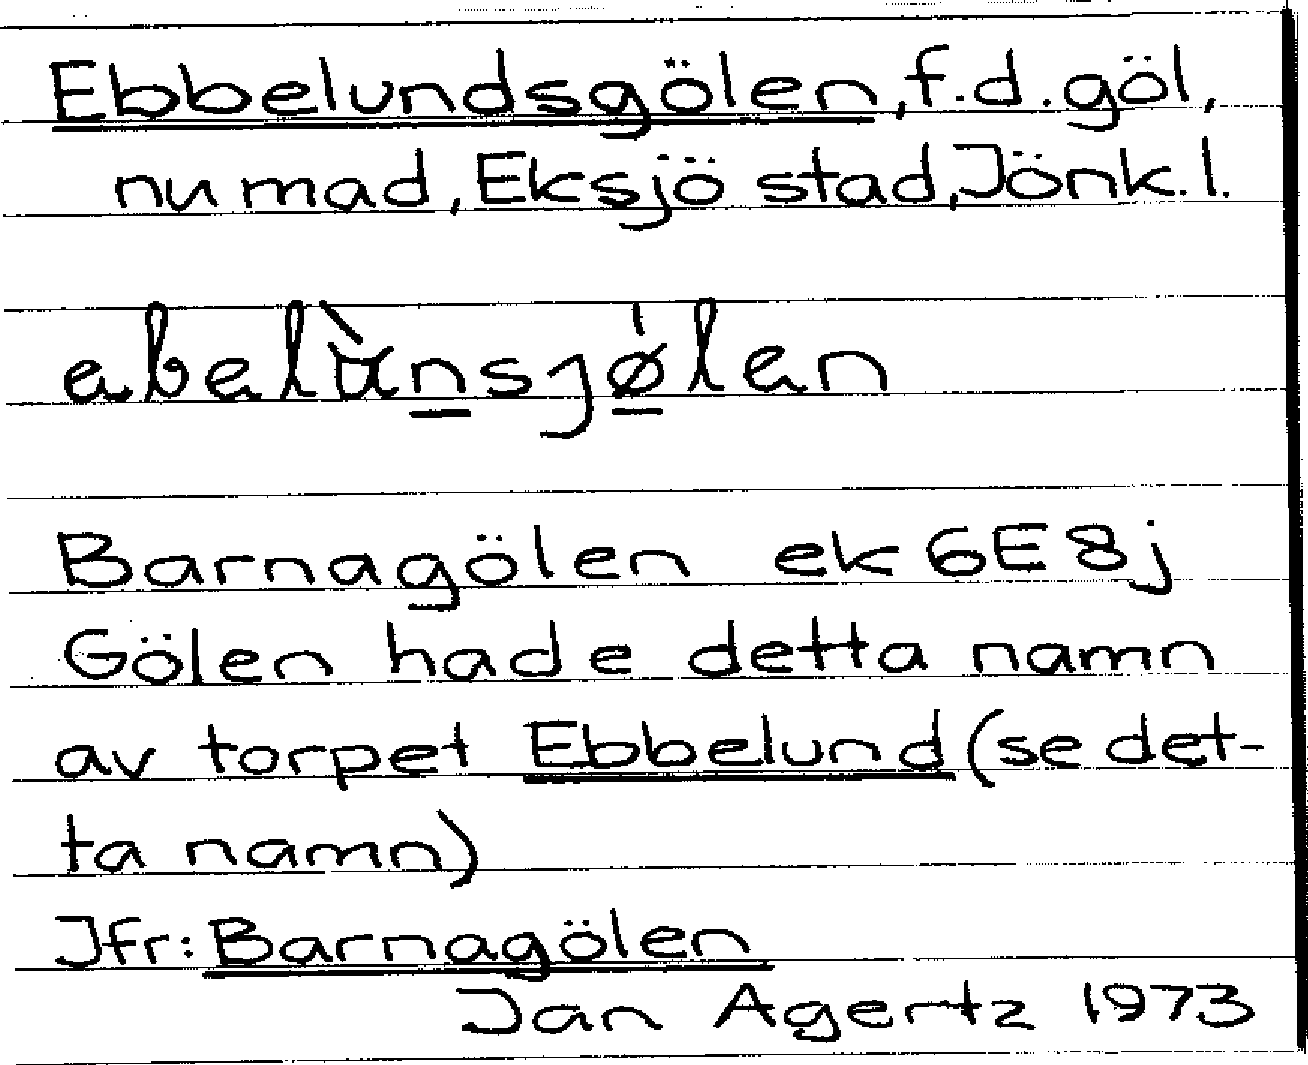 Ebbelundsgölen, f.d. göl,
nu mad, Eksjö stad, Jönk. l.
abelànsjø̍len
Barnagölen ek 6E8j
Gölen hade detta namn
av torpet Ebbelund (se det-
ta namn)
Jfr: Barnagölen
Jan Agertz 1973